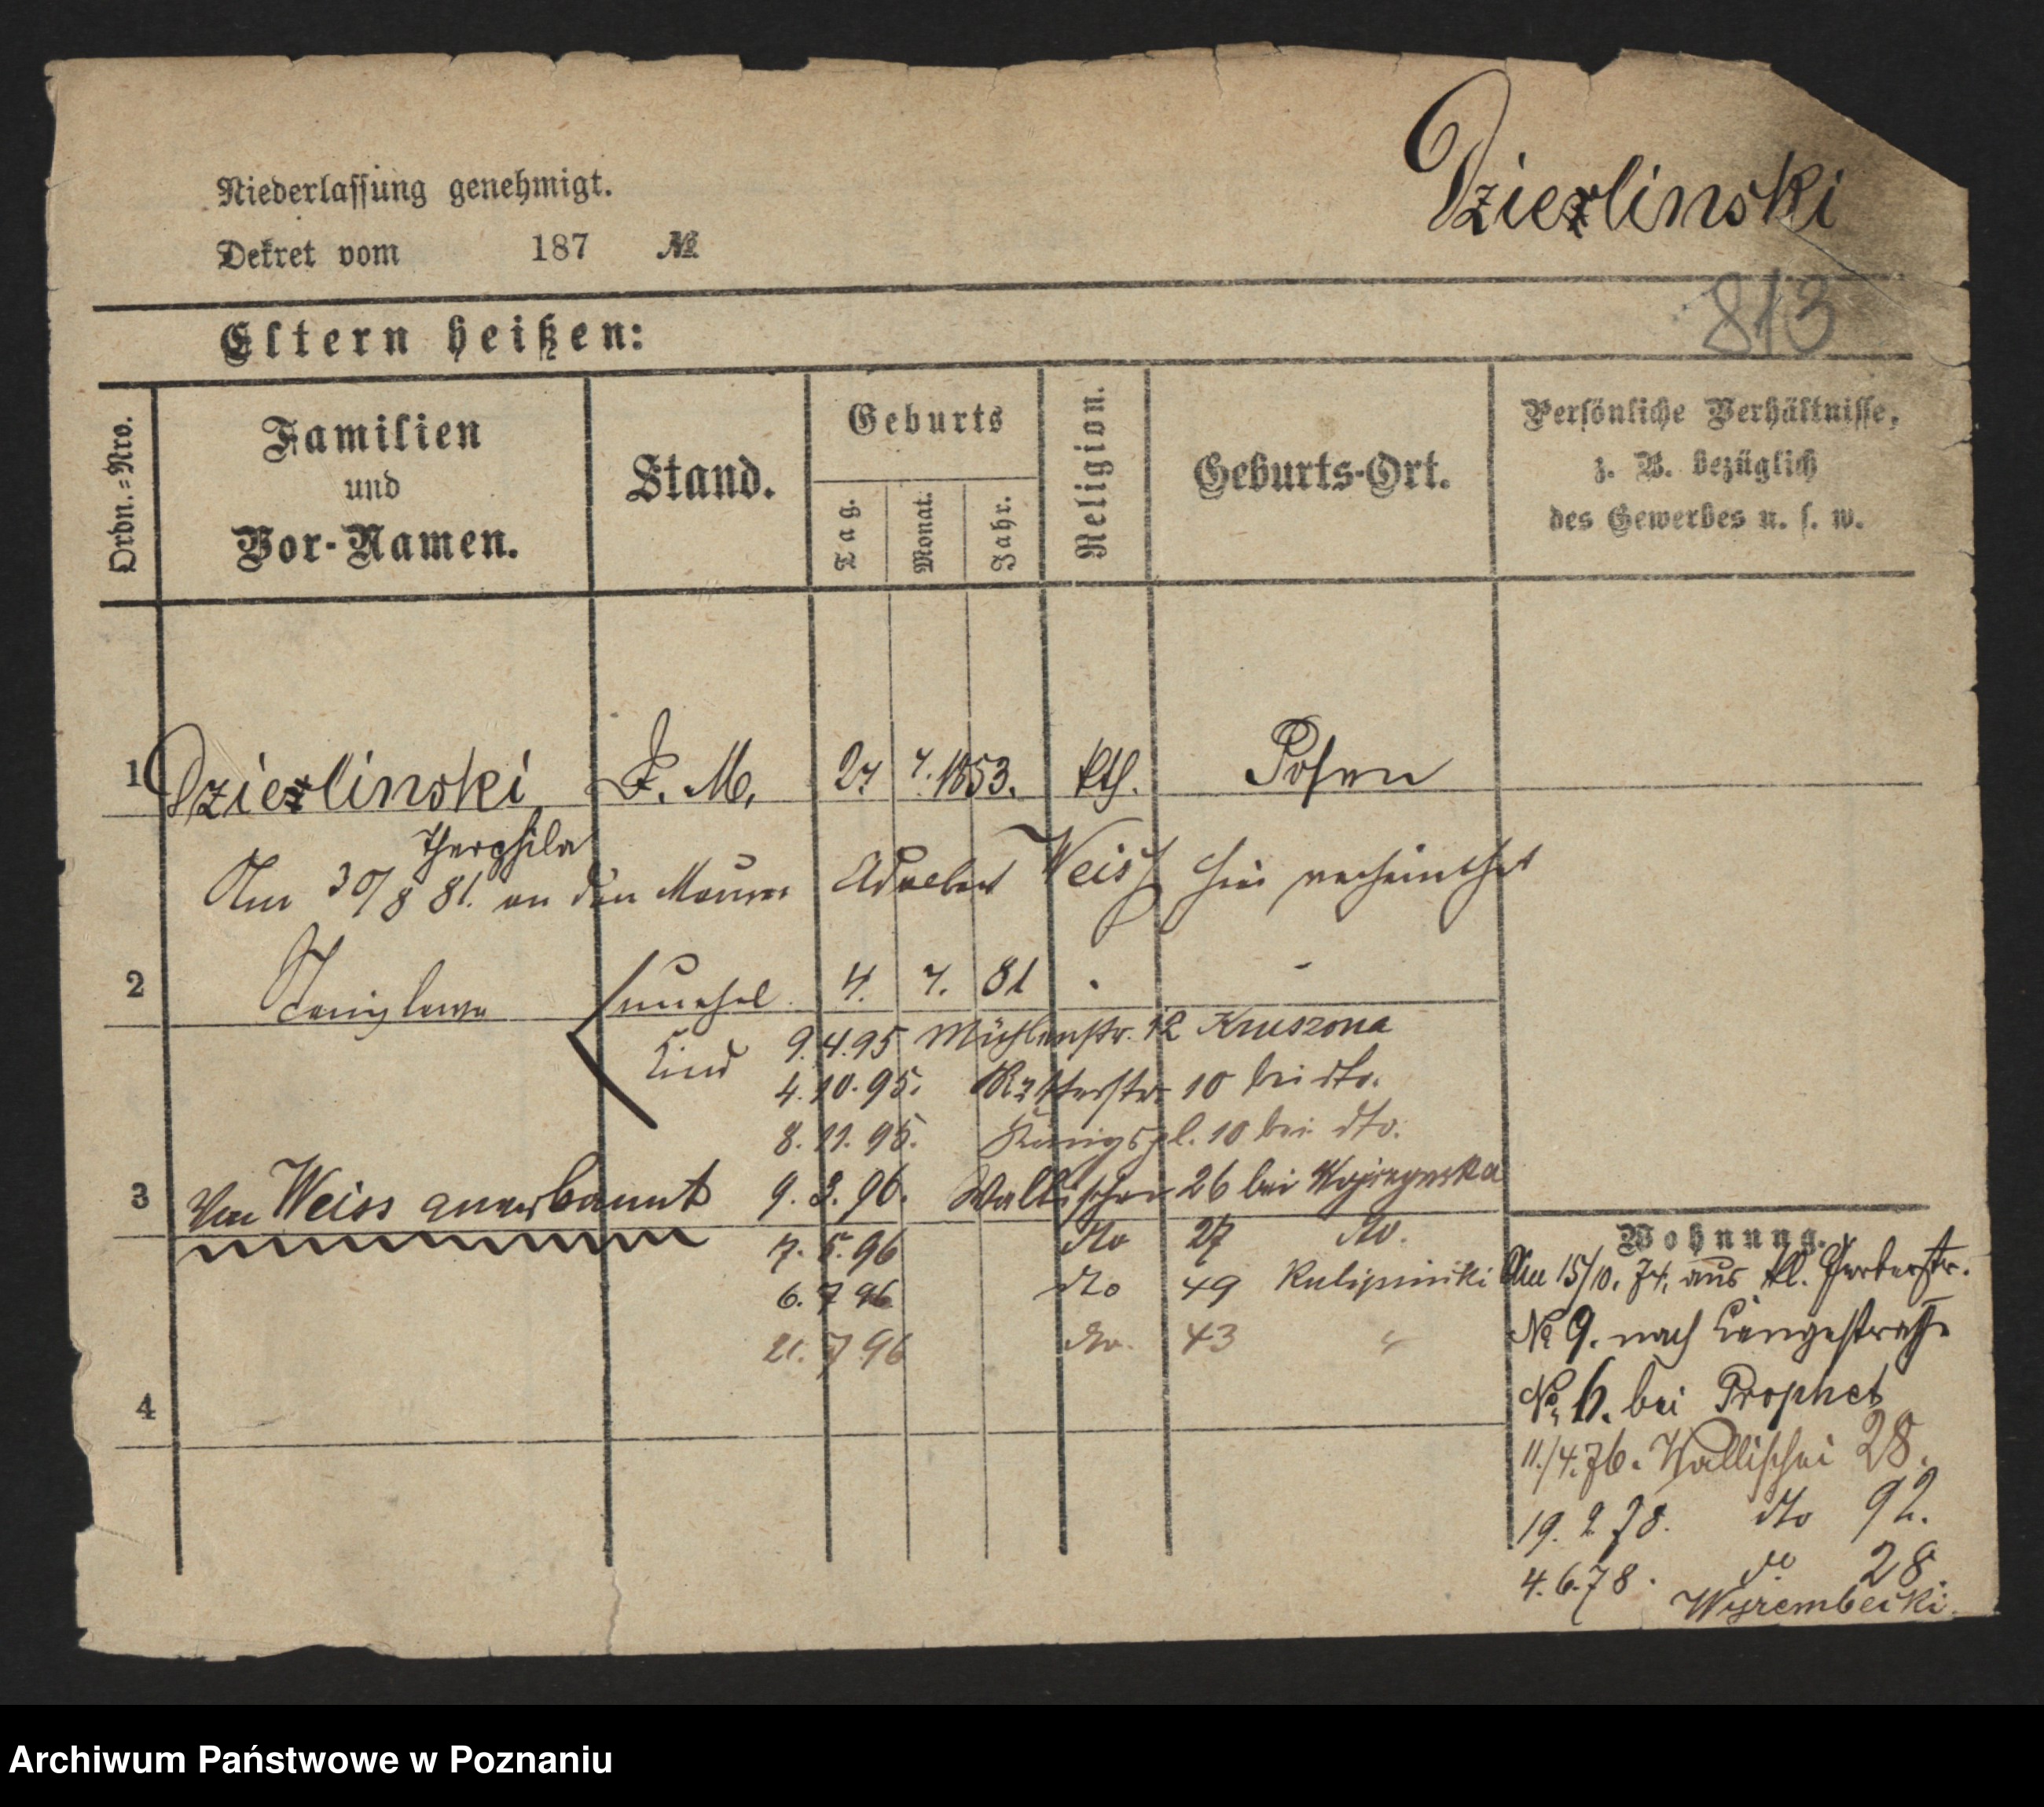 Dzierlinski
Niederlassung genehmigt.
Dekret vom 187 №
813
Eltern heißen:
Ordn.=Nro.
Familien
und
Vor-Namen.
Stand.
Geburts
Tag.
Monat.
Jahr.
Religion.
Geburts-Ort.
Persönliche Verhältnisse,
z. B. bezüglich
des Gewerbes u. s. w.
1 Dzierlinski D. M. 27 7. 1853. kth. Posen
Theophila
Am 30/8 81. an den Maurer Adalbert Weiss hier verheirathet
2 Stanislawa unehel. 4. 7. 81 -
Kind
9.4.95 Mühlenstr. 12 Kruszona
4.10.95. Ritterstr. 10 bei dto.
8.11.95. Königspl. 10 bei dto.
3 Von Weiss anerkannt
9.3.96. Wallischei 26 bei
7.5.96 dto 27 do.
6.7 96 dto 49
21.7 96 dto. 43 "
4
Wohnung.
Am 15/10. 74. aus kl. Gerberstr.
№ 9. nach Langestraße
No. 6. bei Prophet
11./4.76. Wallischei 28.
19.2 78. dto 92.
4.6.78. do 28.
Wyrembecki.
Archiwum Państwowe w Poznaniu